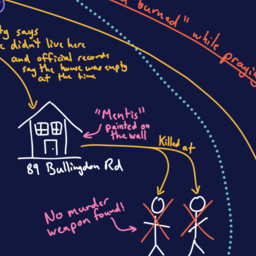 n burned" while praying
ty says
e didn't live here
and official records
say the house was empty
at the time
"Mentis"
painted on
the wall
Killed at
89 Bullingdon Rd
No murder
weapon found!